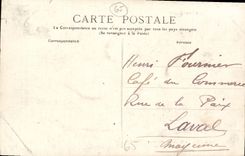 65
CARTE POSTALE
La Correspondance au recto n'est pas acceptée par tous les pays étrangers
(Se renseigner à la Poste)
Correspondance
Adresse
Henri Fournier
Café du Commerce
Rue de la Paix
Laval
65
Mayenne